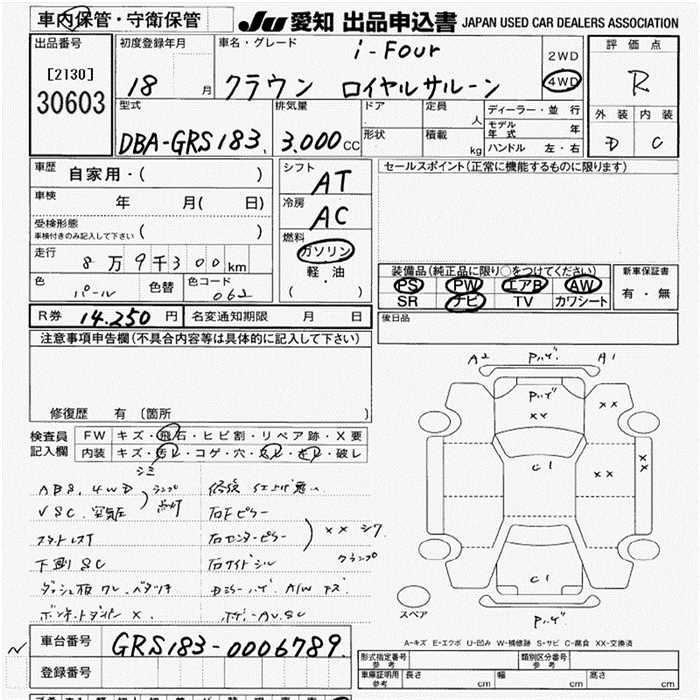 車内保管・守衛保管
JU 愛知 出品申込書 JAPAN USED CAR DEALERS ASSOCIATION
出品番号
[2130]
30603
初度登録年月
18 月
車名・グレード
i-Four
クラウン ロイヤルサルーン
2WD
4WD
評価点
R
外装 内装
D C
型式
DBA-GRS183
排気量
3.000 CC
ドア
形状
定員
人
積載
kg
ディーラー・並行
モデル年式 年
ハンドル 左・右
車歴 自家用・( )
車検 年 月( 日)
受検形態
車検付きのみ記入して下さい ( )
走行
8万9千300km
色 パール 色替 色コード 062
シフト AT
冷房 AC
燃料
ガソリン
軽・油
( ・ )
セールスポイント(正常に機能するものに限ります)
装備品(純正品に限り○をつけてください)
PS PW エアB AW
SR ナビ TV カワシート
新車保証書
有・無
R券 14.250 円 名変通知期限 月 日
後日品
注意事項申告欄(不具合内容等は具体的に記入して下さい)
修復歴 有 (箇所 )
検査員記入欄
FW キズ・飛石・ヒビ割・リペア跡・X要
内装 キズ・汚レ・コゲ・穴・スレ・キレ・破レ
シミ
ABS,4WD ランプ
VSC,空気圧 点灯
修復 仕上げ悪い
右Fピラー
右センターピラー
右サイドシル
xx シワ
クランプ
下廻りSC
ボンネットダンパー X
A2 Pハゲ A1
Pハゲ
xx
xx
C1
xx
xx
C1
Pハゲ
スペア
A-キズ E-エクボ U-凹み W-補修跡 S-サビ C-腐食 XX-交換済
車台番号 GRS183-0006789
登録番号
形式指定番号 参考
類別区分番号 参考
車庫証明用 参考 長さ cm 幅 cm 高さ cm